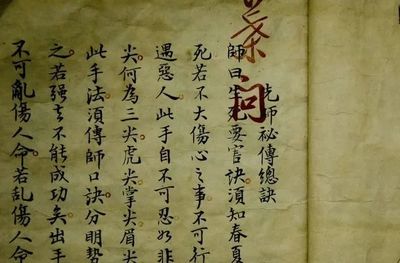 葉問
先師祕傳總訣
師曰生死要害訣須知春夏
死若不大傷心之事不可行
遇惡人此手自不可忍如非
尖何為三尖虎尖掌尖眉尖
此手法須傳師口訣分明勢
之若强言不能成功矣出手
不可亂傷人命若乱傷人命